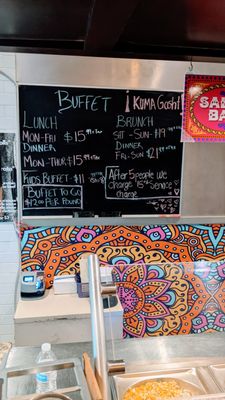 BUFFET
KUMA Gosht
LUNCH
MON-FRI $15.99+TAX
DINNER
MON-THUR $15.99+TAX
KIDS BUFFET-$11
BUFFET TO GO
$12.00 PER POUND
BRUNCH
SAT-SUN $19
DINNER
FRI-SUN $21
After 5 people we
CHARGE 15% SERVICE
charge
SAL
BA